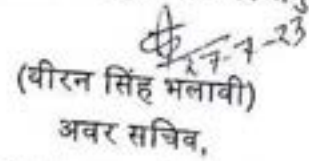 27-7-23
(वीरन सिंह भलावी)
अवर सचिव,